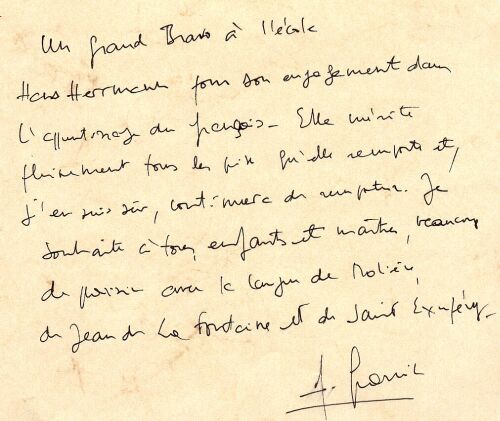 Un grand Bravo à l'école
Hans Herrmann pour son engagement dans
l'apprentissage du français. Elle mérite
pleinement tous les prix qu'elle remporte et,
j'en suis sûr, continuera de remporter. Je
souhaite à tous, enfants et maîtres, beaucoup
de plaisir avec la langue de Molière,
de Jean de La Fontaine et de Saint Exupéry.